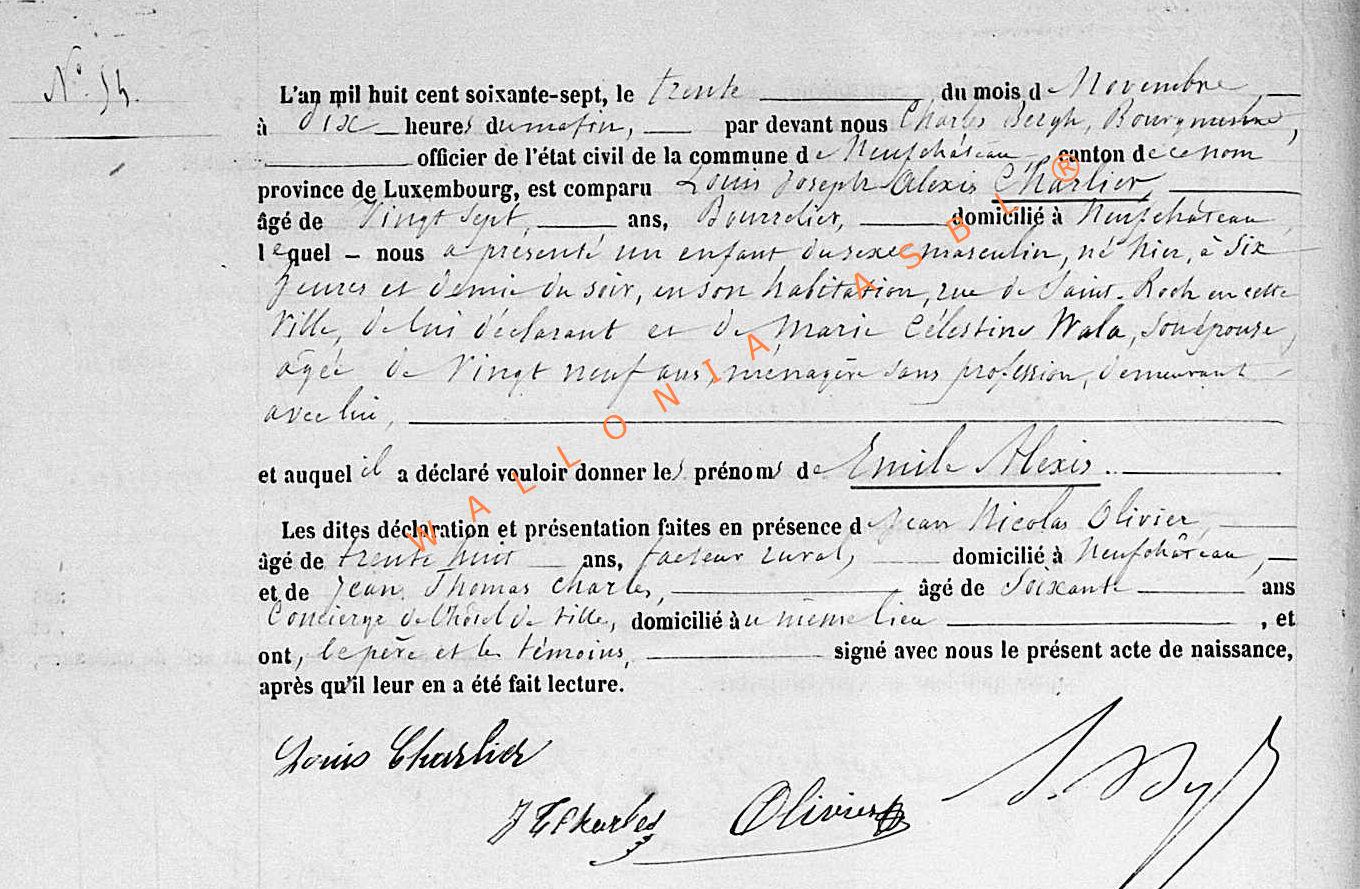 N° 54.
L'an mil huit cent soixante-sept, le trente du mois de Novembre
à dix heures du matin, par devant nous Charles Bergh, Bourgmestre,
officier de l'état civil de la commune de Neufchâteau, canton de ce nom
province de Luxembourg, est comparu Louis Joseph Alexis Charlier,
âgé de vingt sept, ans, Bourrelier, domicilié à Neufchâteau,
lequel – nous a présenté un enfant du sexe masculin, né hier, à Six
heures et demie du soir, en son habitation, rue de Saint-Roch en cette
ville, de lui déclarant et de Marie Célestine Wala, son épouse,
agée de vingt neuf ans, ménagère sans profession, demeurant
avec lui,
et auquel il a déclaré vouloir donner les prénoms de Emile Alexis.
Les dites déclaration et présentation faites en présence de Jean Nicolas Olivier,
âgé de trente huit ans, facteur rural, domicilié à Neufchâteau,
et de Jean Thomas Charles, âgé de Soixante ans
Concierge de l'hôtel de ville, domicilié au même lieu , et
ont, le père et les témoins, signé avec nous le présent acte de naissance,
après qu'il leur en a été fait lecture.
Louis Charlier
J T Charles Olivier
WALLONIA ASBL ®